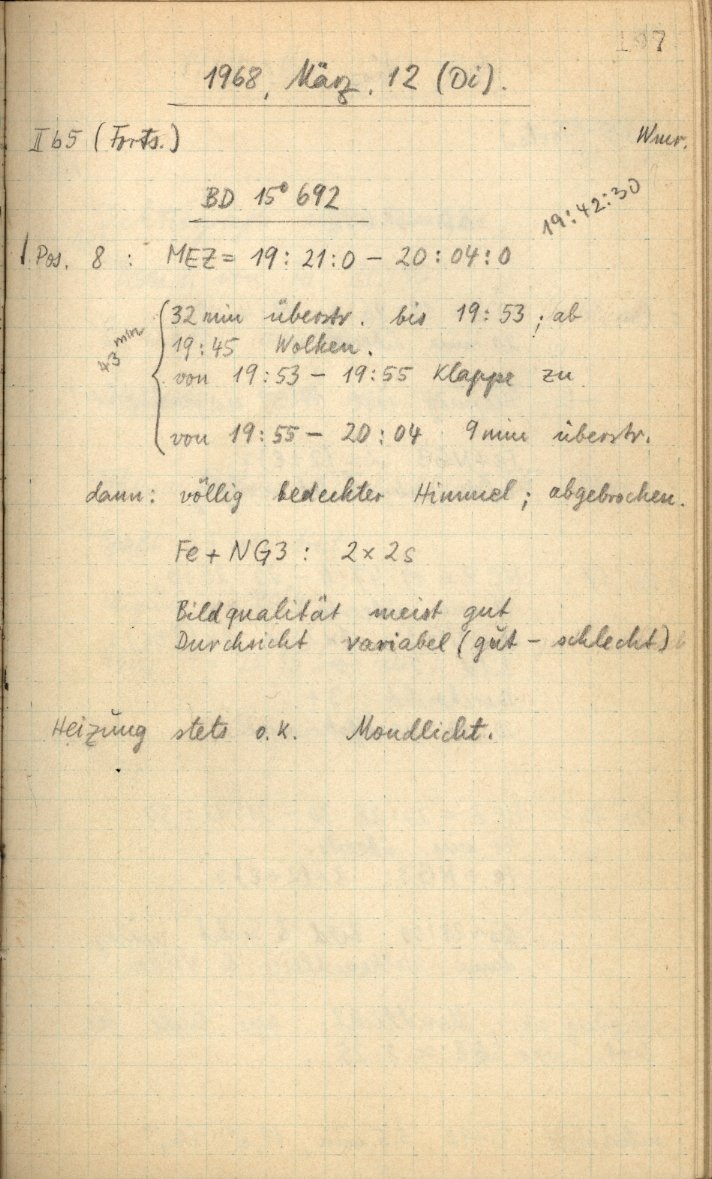 1968, März, 12 (Di).
II b5 (Forts.) Wmr.
BD 15° 692
19:42:30
Pos. 8 : MEZ = 19:21:0 – 20:04:0
43 min
32 min überstr. bis 19:53 ; ab
19:45 Wolken.
von 19:53 – 19:55 Klappe zu
von 19:55 – 20:04 9 min überstr.
dann: völlig bedeckter Himmel ; abgebrochen.
Fe + NG3 : 2 × 2s
Bildqualität meist gut
Durchsicht variabel (gut – schlecht)
Heizung stets o.k. Mondlicht.